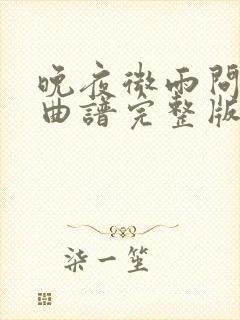 晚夜微雨問
曲譜完整版
柒一笙